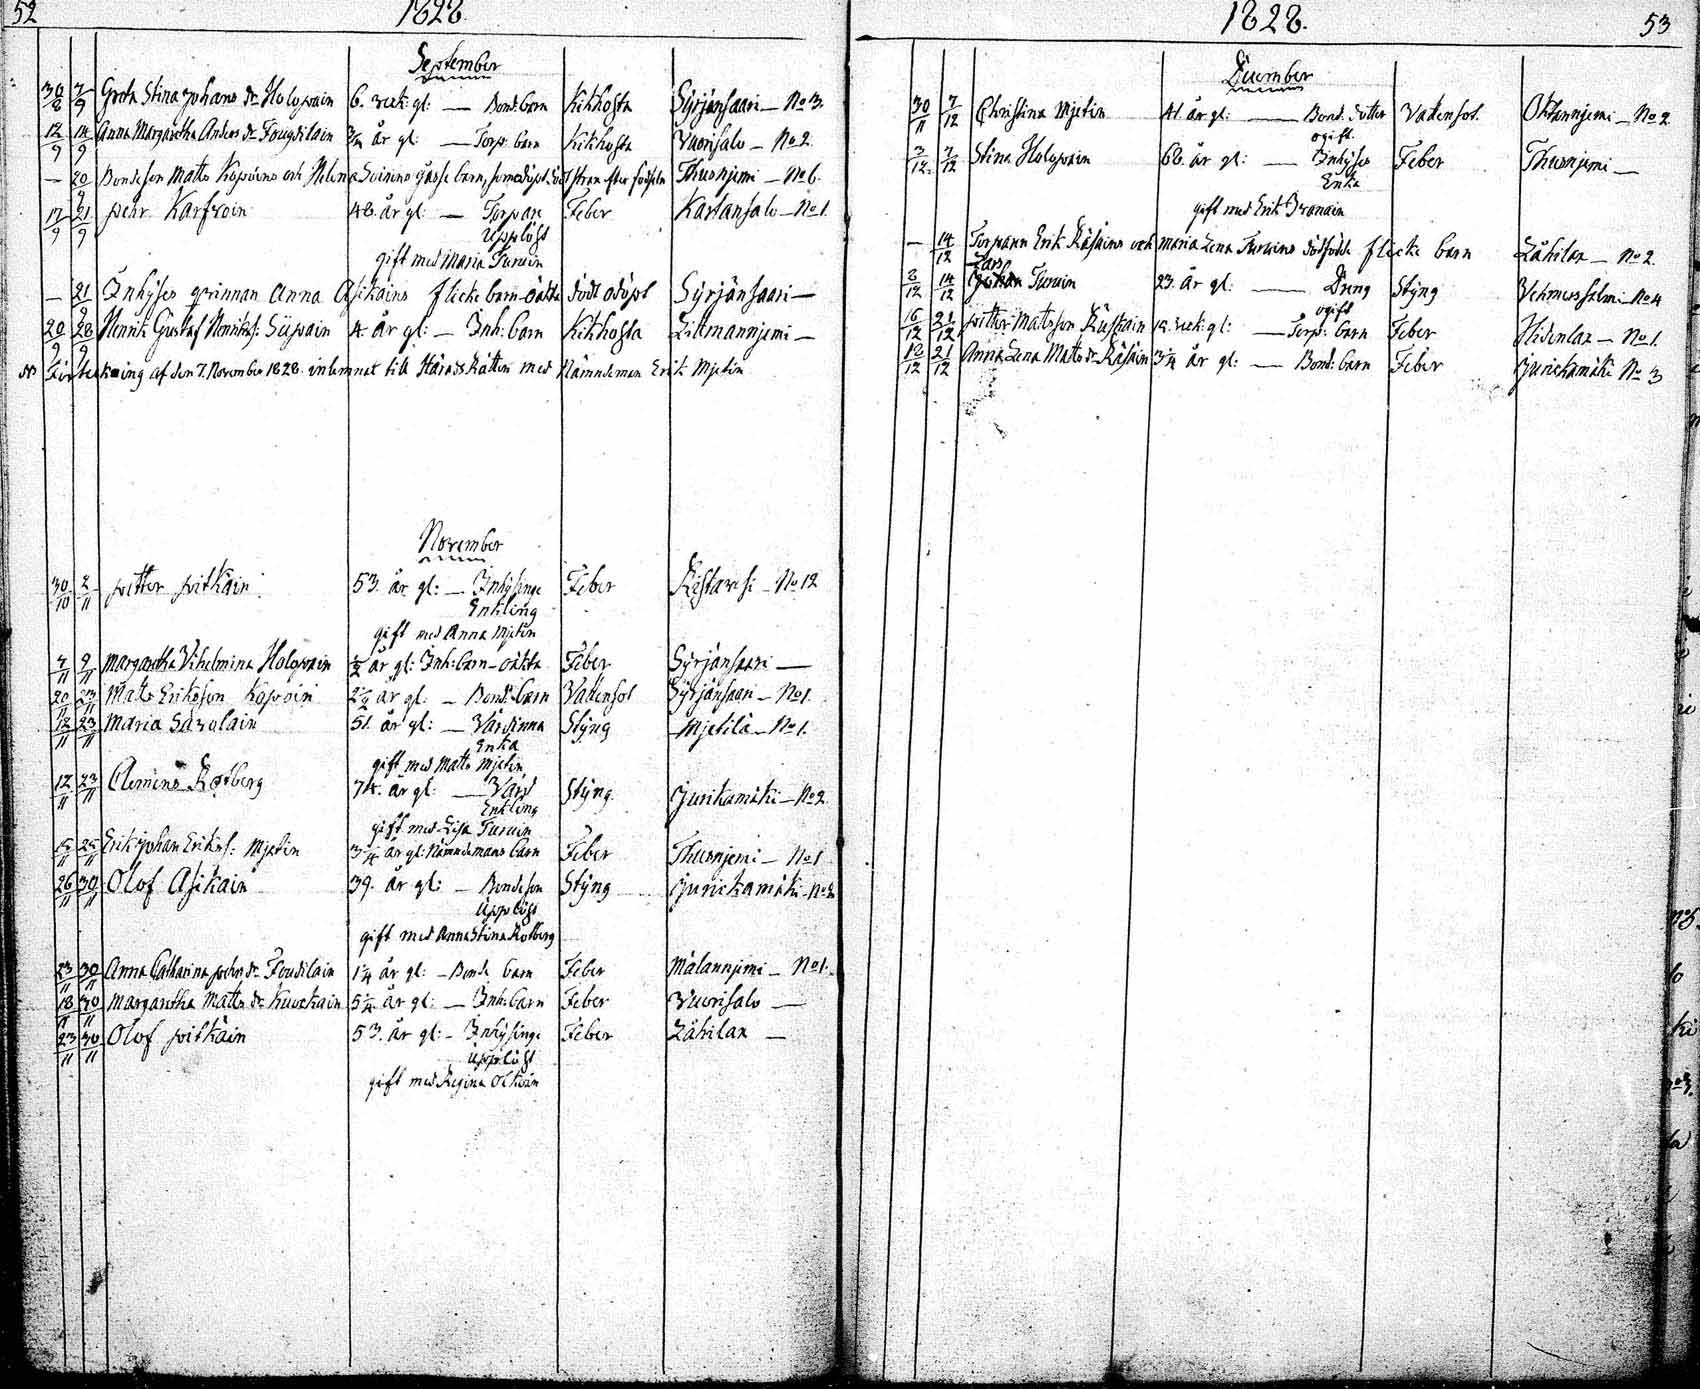 52
1828
September
30/8 7/9 Greta Stina Johans dr Holopain 6. veck: gl: — Bond: barn Kikhosta Syrjänsaari — No 3.
12/9 14/9 Anna Margaretha Anders dr 3/4 år gl: — Torp: barn Kikhosta Vuorisalo — No 2.
— 20/9 Bondeson Matts och Helena gåsse barn, strax efter Thusnjemi — No 6.
17/9 21/9 pehr 48. år gl: — Torpare Feber Kartansalo — No 1.
Upplöst
gift med Maria Turuin
— 21/9 Inhyses qvinnan Anna Asikains flicke barn - oäkta dödt odöpt Syrjänsaari —
20/9 28/9 Henrik Gustaf Henriks: 4. år gl: — Inh: barn Kikhosta Littmannjemi —
NB Förteckning af den 7. November 1828. inlemnat till Härads Rätten med Nämndeman Erik Mjetin
November
30/10 2/11 petter pitkäin 53. år gl: — Inhysinge Feber — No 12
Enkling
gift med Anna Mjetin
4/11 9/11 Margaretha Vilhelmina Holopain 1/2 år gl: Inh: barn - oäkta Feber Syrjänsaari —
20/11 23/11 Matts Eriksson Kopoin år gl: — Bond: barn Vattensot Syrjänsaari — No 1.
12/11 23/11 Maria Savolain 51. år gl: — Värdinna Styng Mjetilä — No 1.
Enka
gift med Matts Mjetin
12/11 23/11 Clemens Rotberg 74. år gl: — Värd Styng Jurickamäki — No 2
Enkling
gift med Lisa Turuin
15/11 25/11 Erik Johan Eriks: Mjetin 3 1/4 år gl: Nämndemans barn Feber Thusnjemi — No 1
26/11 30/11 Olof Asikain 39. år gl: — Bondeson Styng Jurickamäki — No 2
Upplöst
gift med Anna Stina Rotberg
23/11 30/11 Anna Catharina pehrs dr 1 1/4 år gl: — Bonde barn Feber Malannjemi — No 1.
18/11 30/11 Margaretha Matts dr 5 1/4 år gl: — Inh: barn Feber Vuorisalo —
23/11 30/11 Olof pitkäin 53. år gl: — Inhysinge Feber Lähilax —
Upplöst
gift med Regina
1828.
53
December
30/11 7/12 Christina Mjetin 41. år gl: — Bond: dotter Vattensot. — No 2
ogift.
3/12 7/12 Stina Holopain 66. år gl: — Inhyses Feber Thusnjemi —
Enka
gift med Erik
— 14/12 Torparn Erik Räisäins och Maria Lena Turuins dödfödde flicke barn Lähilax — No 2.
Lars
8/12 14/12 Johan Turuin 23. år gl: — Dreng Styng — No 4
ogift
16/12 21/12 petter Mattsson veck: gl: — Torp: barn Feber Hidenlax — No 1.
18/12 21/12 Anna Lena Matts dr Räisäin 3 1/4 år gl: — Bond: barn Feber Jurickamäki No 3